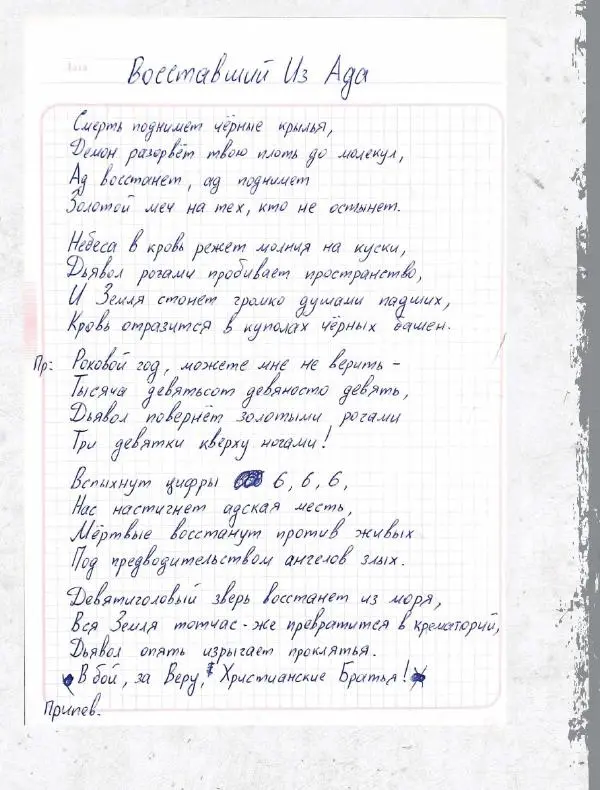 Восставший Из Ада
Смерть поднимет чёрные крылья,
Демон разорвёт твою плоть до молекул,
Ад восстанет, ад поднимет
Золотой меч на тех, кто не остынет.
Небеса в кровь режет молния на куски,
Дьявол рогами пробивает пространство,
И Земля стонет громко душами падших,
Кровь отразится в куполах чёрных башен.
Пр: Роковой год, можете мне не верить -
Тысяча девятьсот девяносто девять,
Дьявол повернёт золотыми рогами
Три девятки кверху ногами!
Вспыхнут цифры 6, 6, 6,
Нас настигнет адская месть,
Мёртвые восстанут против живых
Под предводительством ангелов злых.
Девятиголовый зверь восстанет из моря,
Вся Земля тотчас-же превратится в крематорий,
Дьявол опять изрыгает проклятья.
В бой, за Веру, Христианские Братья!
Припев.